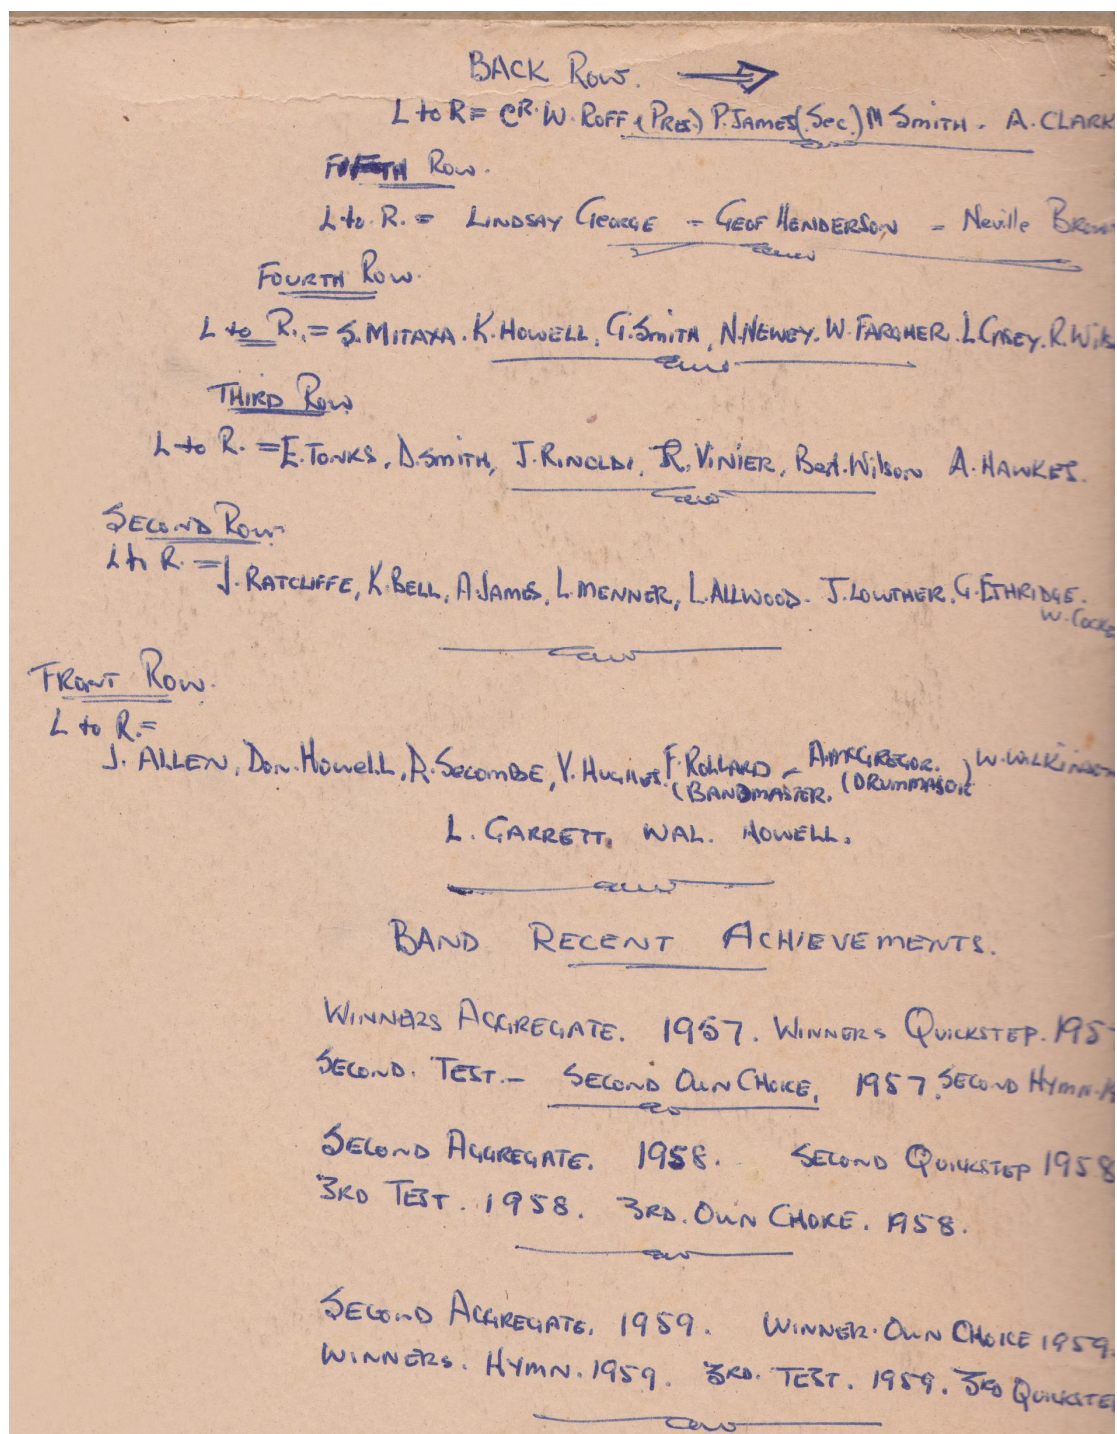 BACK ROW.
L to R = CR. W. ROFF (PRES.) P. JAMES (SEC.) M SMITH. A. CLARK
FIFTH ROW.
L to R. = LINDSAY GEORGE - GEOF HENDERSON - Neville
FOURTH ROW.
L to R. = S. MITAXA. K. HOWELL, G. SMITH, N. NEWEY. W. FARGHER. L. GREY. R.
THIRD ROW
L to R. = E. TONKS, D. SMITH, J. RINOLDI, R. VINIER, Bert. Wilson A. HAWKES.
SECOND ROW
L to R. = J. RATCLIFFE, K. BELL, A. JAMES, L. MENNER, L. ALLWOOD. J. LOWTHER, G. ETHRIDGE.
W.
FRONT ROW.
L to R. =
J. ALLEN, DON. HOWELL, R. SECOMBE, V. HUGHES. F. ROLLARD - A. McGREGOR. W.
(BANDMASTER. (DRUMMAJOR)
L. GARRETT, WAL. HOWELL.
BAND RECENT ACHIEVEMENTS.
WINNERS AGGREGATE. 1957. WINNERS QUICKSTEP.
SECOND. TEST. - SECOND OWN CHOICE, 1957. SECOND HYMN.
SECOND AGGREGATE. 1958. SECOND QUICKSTEP 1958
3RD TEST. 1958. 3RD. OWN CHOICE. 1958.
SECOND AGGREGATE. 1959. WINNER. OWN CHOICE 1959.
WINNERS. HYMN. 1959. 3RD. TEST. 1959. 3RD